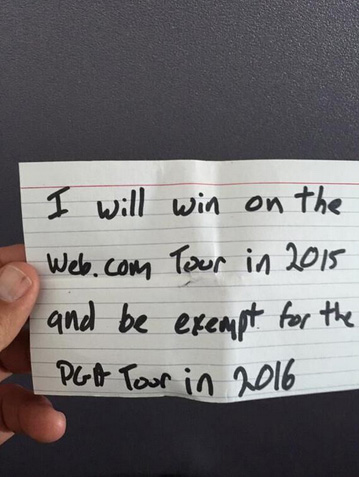 I will win on the
Web.com Tour in 2015
and be exempt for the
PGA Tour in 2016